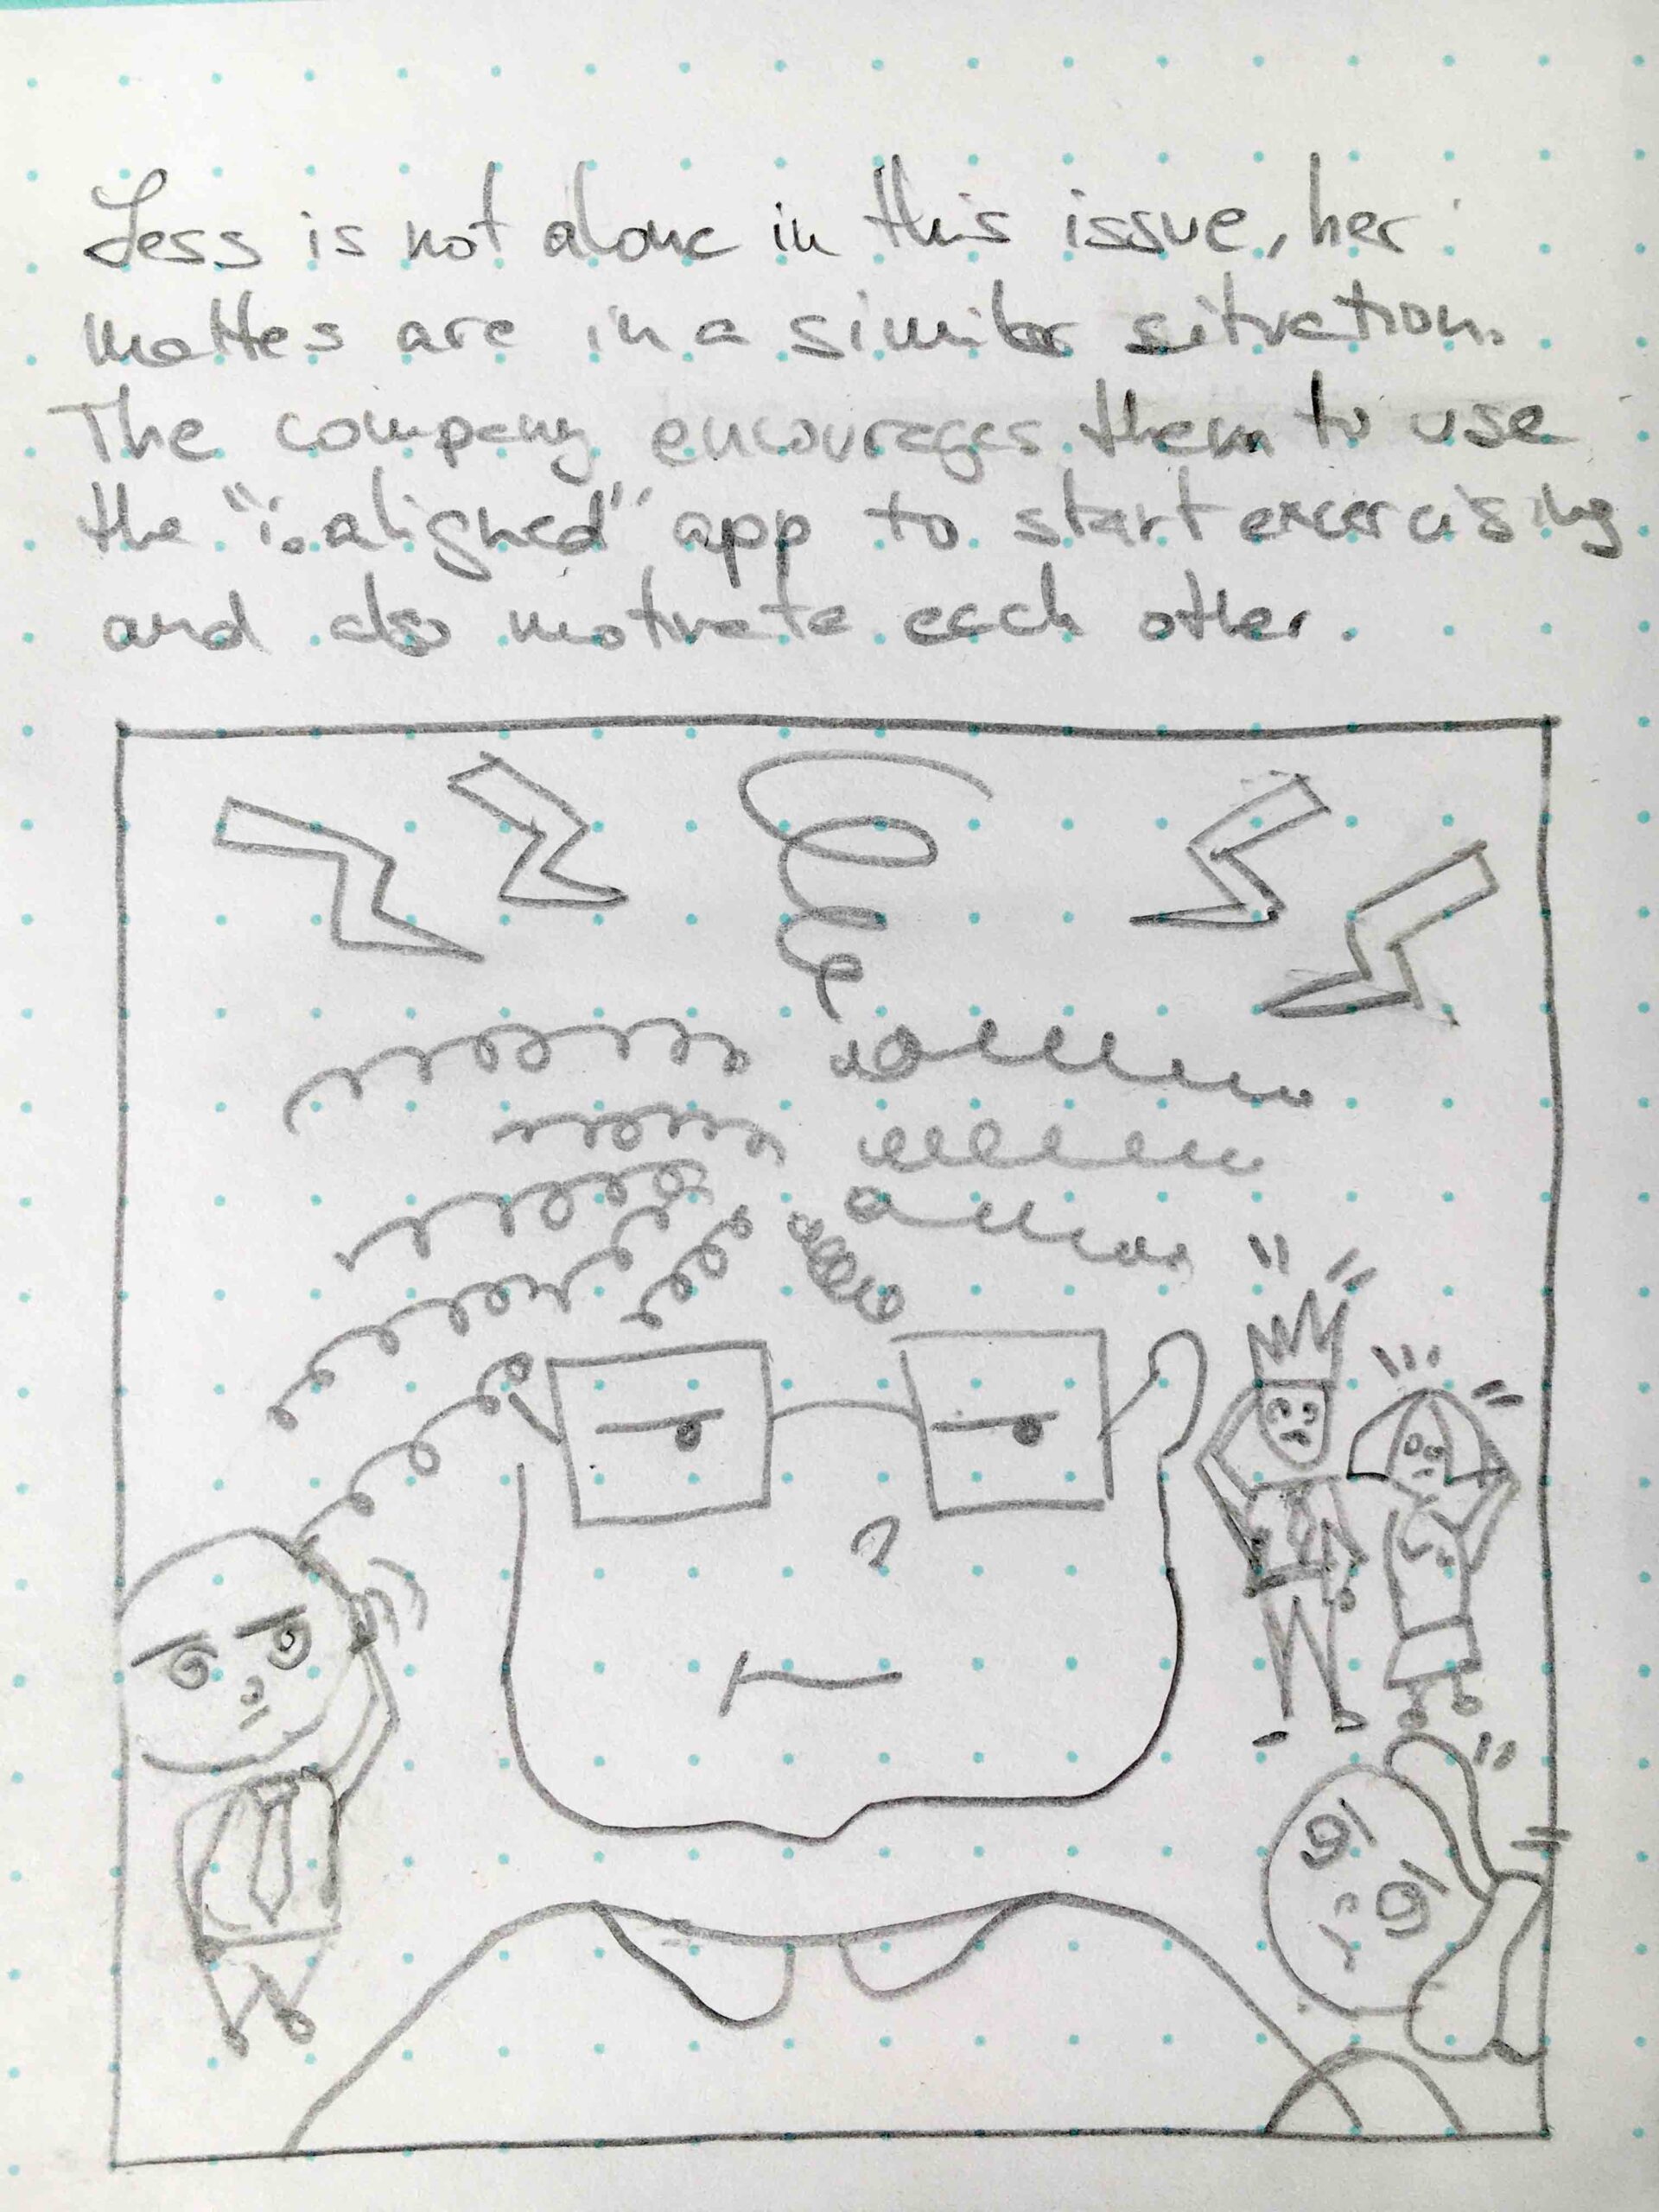 Jess is not alone in this issue, her
mattes are in a similar situation.
The company encourages them to use
the "i.aligned" app to start excercising
and also motivate each other.